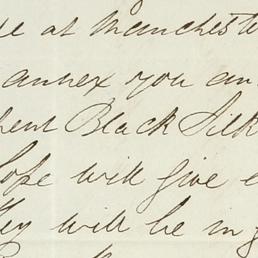 at Manchester
annex you an
Black Silk
hope will give
they will be in g